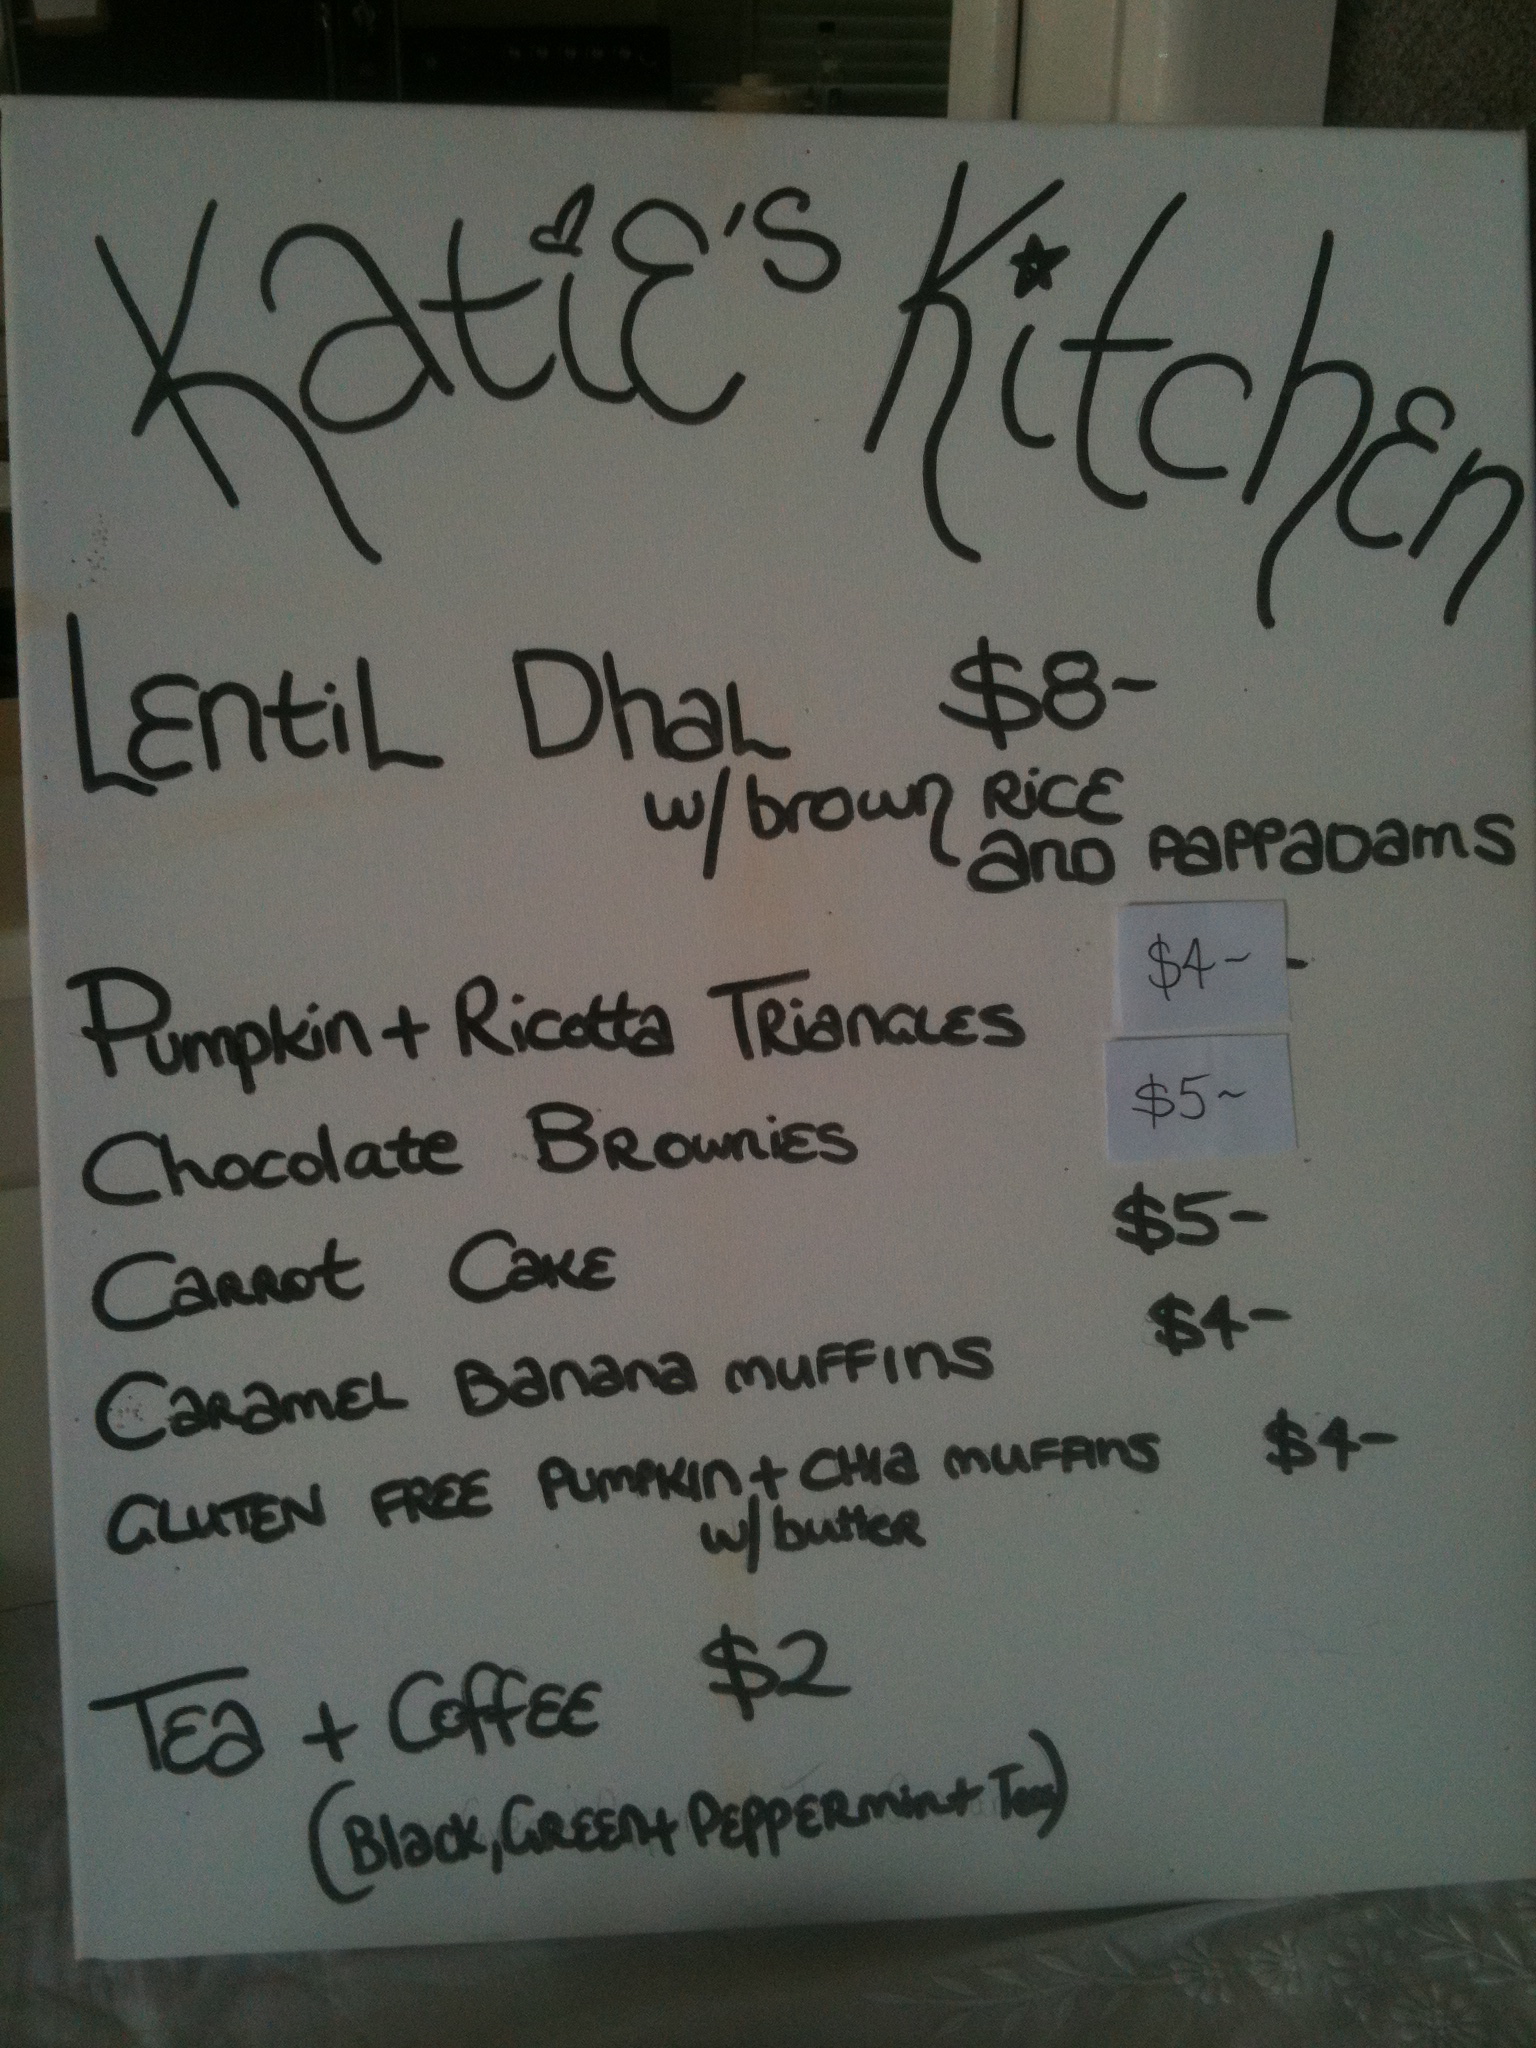 Katie's Kitchen
Lentil Dhal $8-
w/ brown Rice
and pappadams
Pumpkin + Ricotta Triangles $4~
Chocolate Brownies $5~
Carrot Cake $5-
Caramel Banana muffins $4-
GLUTEN FREE PUMPKIN + CHIA muffins $4-
w/ butter
Tea + Coffee $2
(Black, Green + Peppermint Teas)